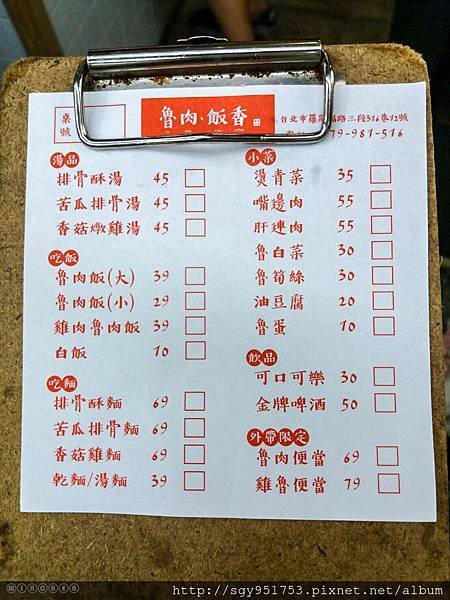 桌號
魯肉、飯香
台北市羅斯福路三段316巷12號
79-981-516
湯品
排骨酥湯 45
苦瓜排骨湯 45
香菇燉雞湯 45
吃飯
魯肉飯(大) 39
魯肉飯(小) 29
雞肉魯肉飯 39
白飯 10
吃麵
排骨酥麵 69
苦瓜排骨麵 69
香菇雞麵 69
乾麵/湯麵 39
小菜
燙青菜 35
嘴邊肉 55
肝連肉 55
魯白菜 30
魯筍絲 30
油豆腐 20
魯蛋 10
飲品
可口可樂 30
金牌啤酒 50
外帶限定
魯肉便當 69
雞魯便當 79
WINCHEN
http://sgy951753.pixnet.net/album